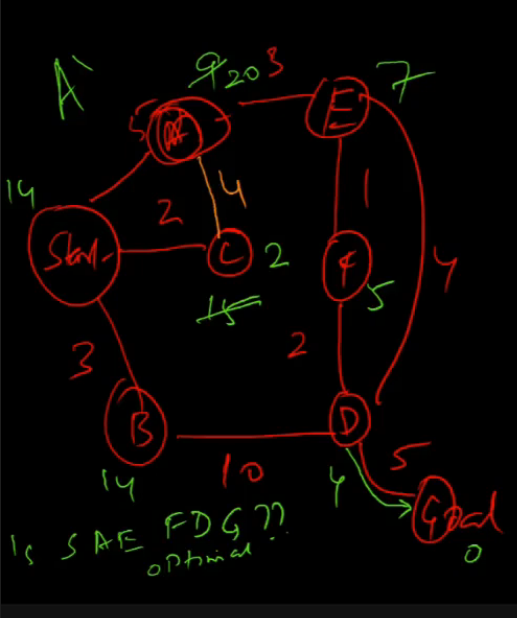 A*
9 20 3
7
5
A
E
14
2
4
1
Start
C
2
F
4
15
5
3
2
B
D
10
5
14
4
Goal
0
Is SAE FDG??
optimal